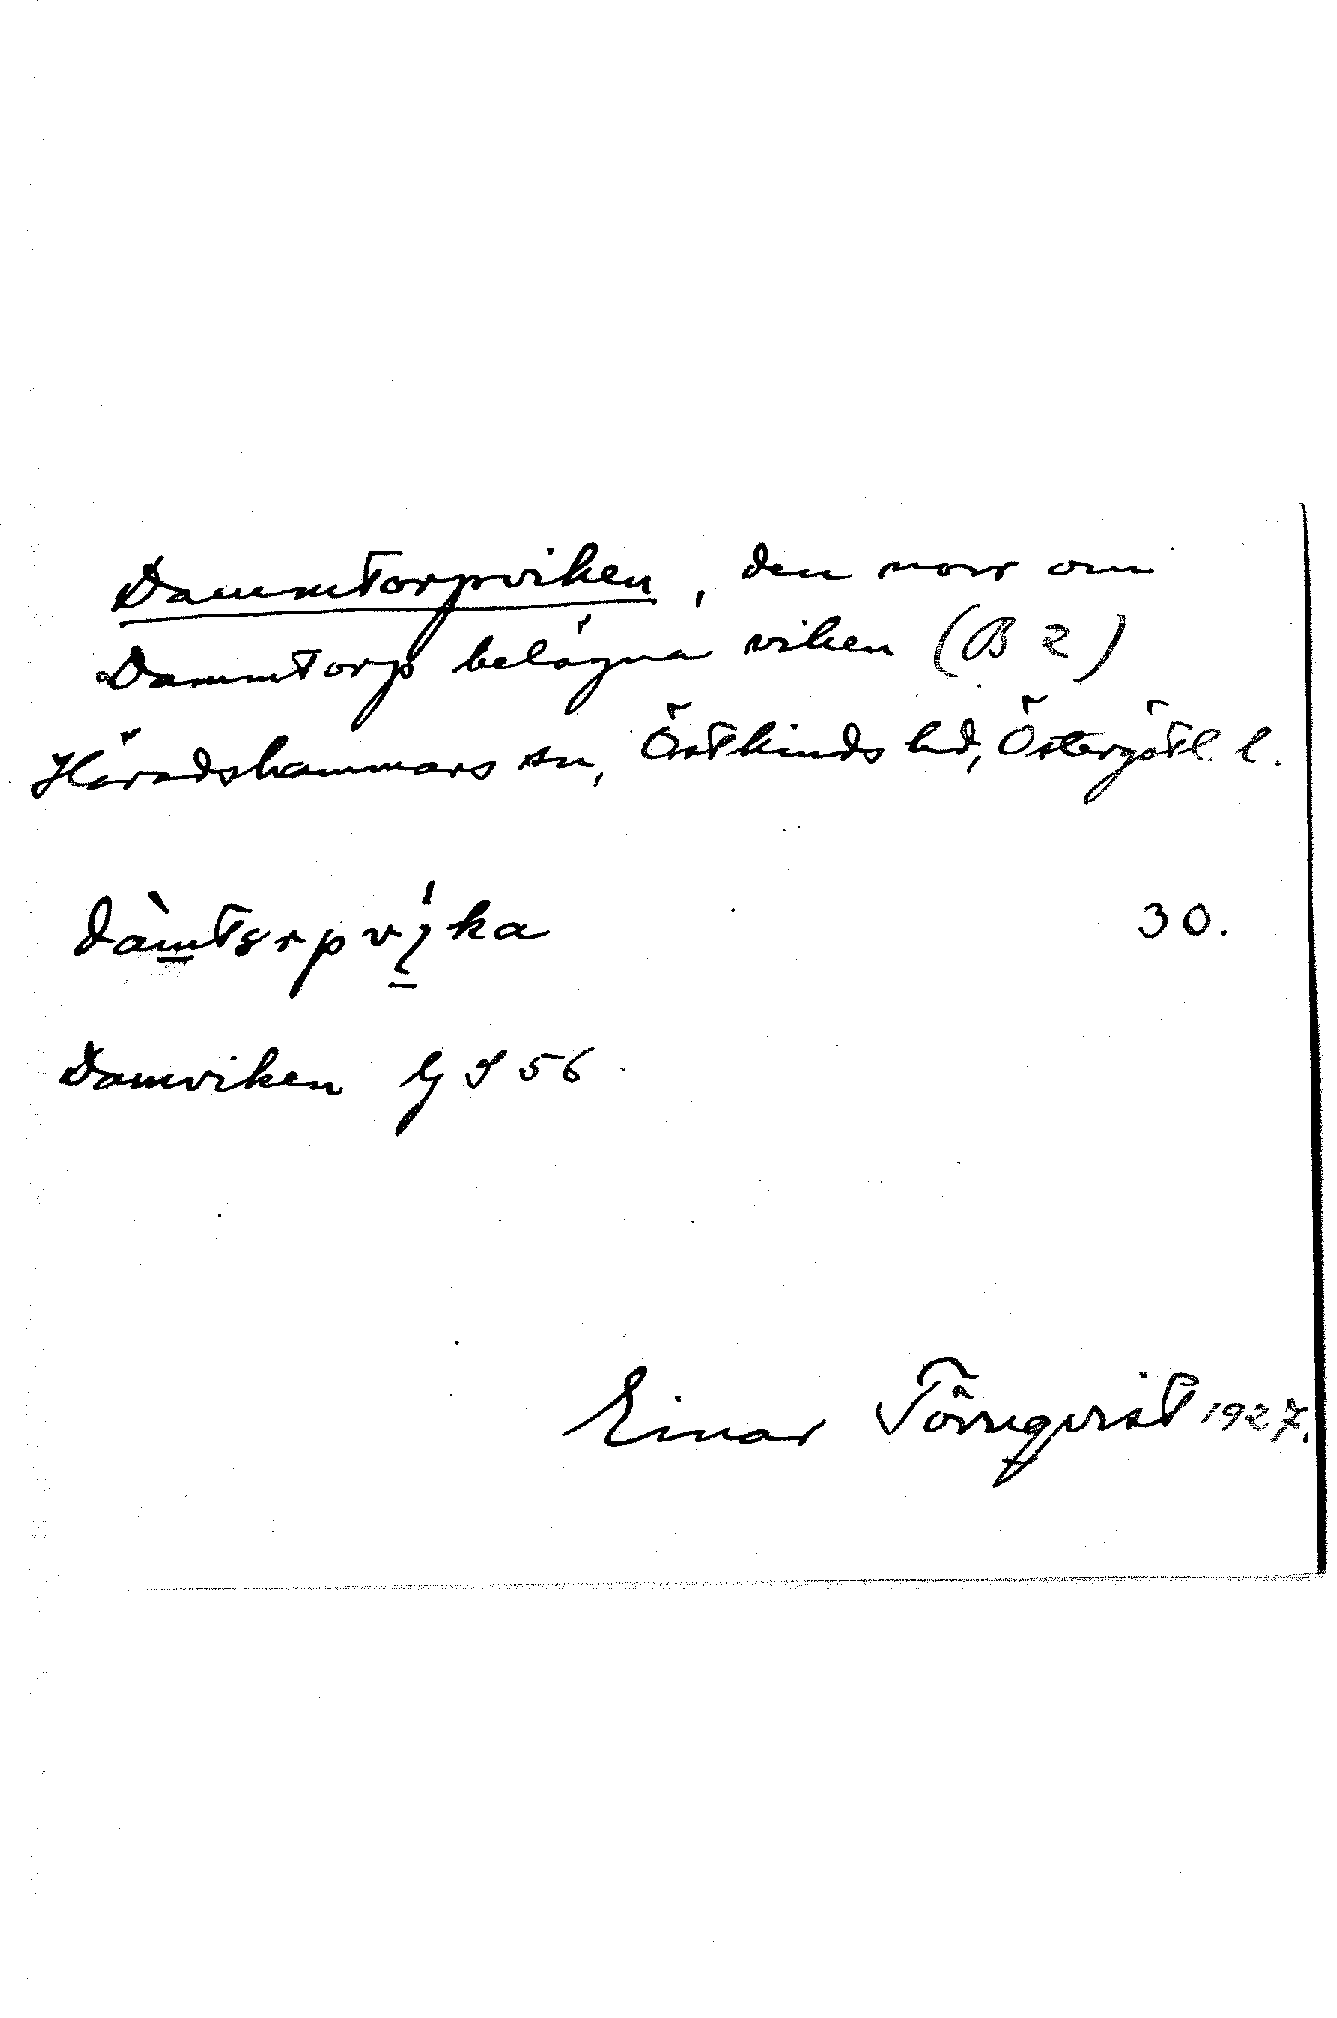 Dammtorpviken, den norr om
Dammtorp belägna viken (B 2)
Häradshammars sn, Östkinds hd, Östergötl. l.
30.
Damviken G S 56
Einar Törnqvist 1927.